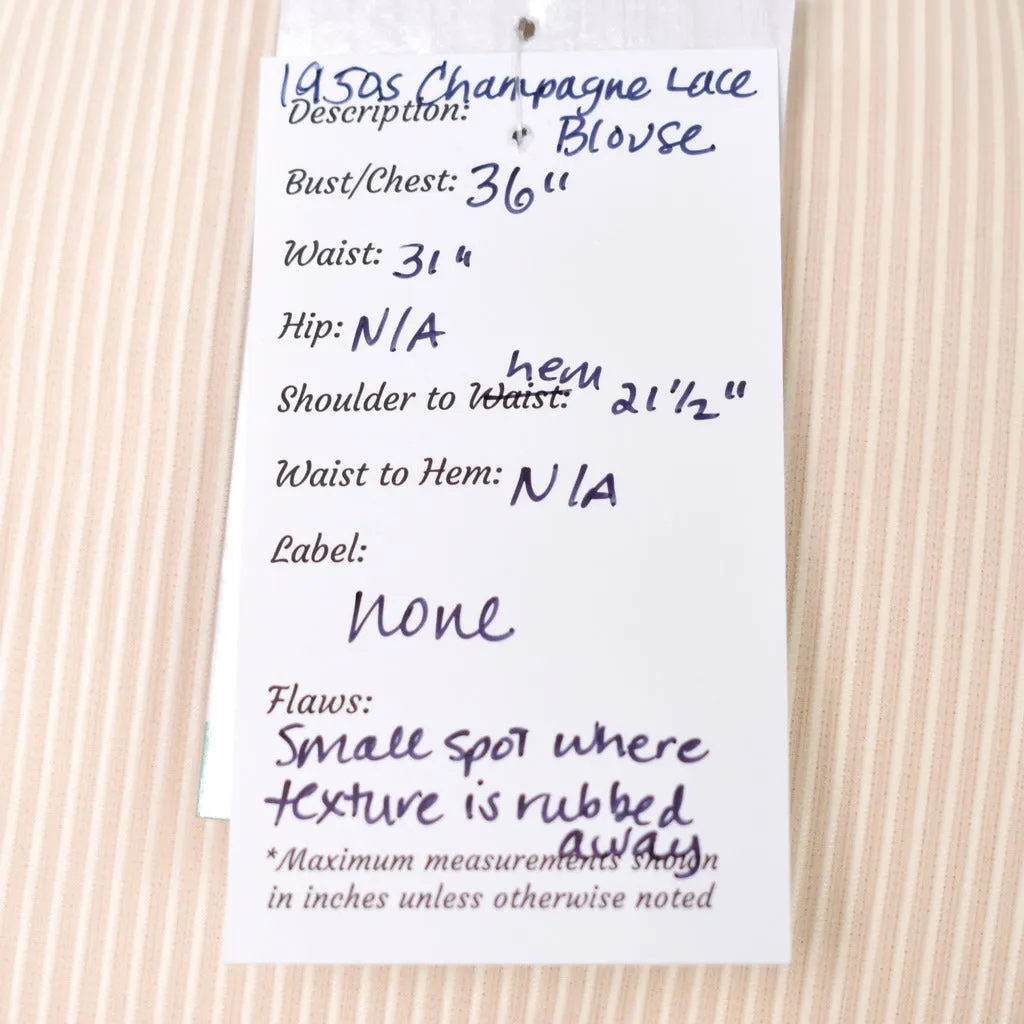 1950s Champagne Lace
Description:
Blouse
Bust/Chest: 36"
Waist: 31"
Hip: N/A
hem
Shoulder to Waist: 21 1/2"
Waist to Hem: N/A
Label:
none
Flaws:
Small spot where
texture is rubbed
away
*Maximum measurements shown
in inches unless otherwise noted